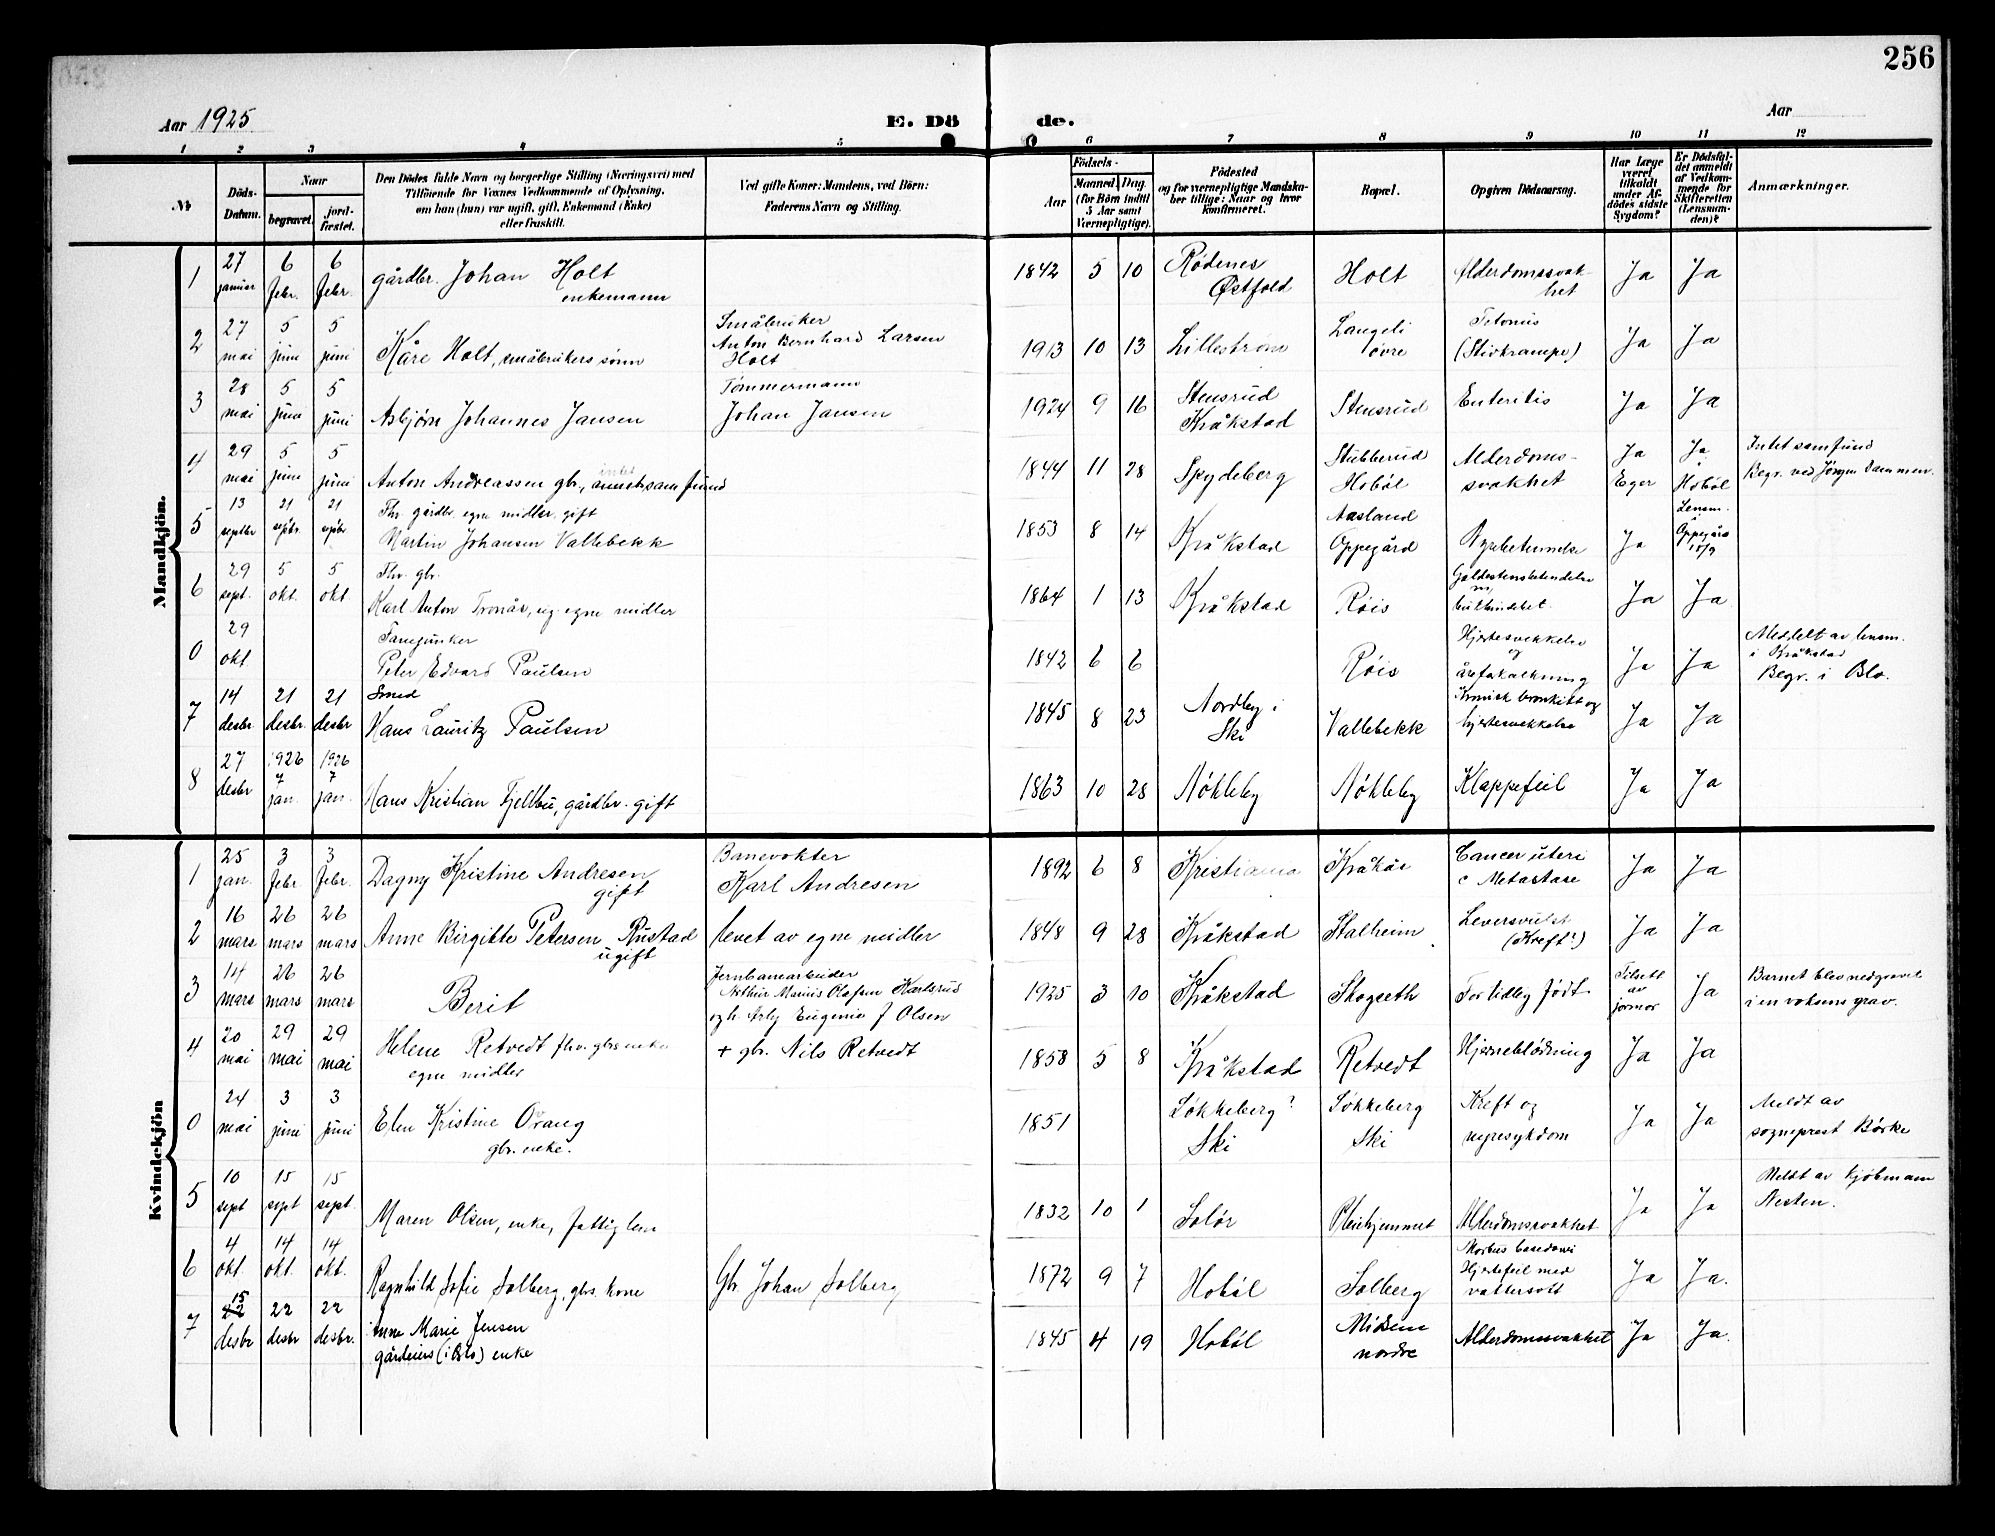 256
Aar 1925
E. Dö de.
Aar
1 2 3 4 5 6 7 8 9 10 11 12
№
Döds-Datum.
Naar
begravet.
jord-fæstet.
Den Dödes fulde Navn og borgerlige Stilling (Næringsvei) med
Tilföiende for Voxnes Vedkommende af Oplysning,
om han (hun) var ugift, gift, Enkemand (Enke)
eller fraskilt.
Ved gifte Koner: Mandens, ved Börn:
Faderens Navn og Stilling.
Födsels-
Aar
Maaned. Dag.
(for Börn indtil
5 Aar samt
Værnepligtige).
Födested
og for værnepligtige Mandska-
ber tillige: Naar og hvor
konfirmeret.
Bopæl.
Opgiven Dödsaarsag.
Har Læge
været
tilkaldt
under Af-
dödes sidste
Sygdom?
Er Dödsfal-
det anmeldt
af Vedkom-
mende for
Skifteretten
(Lensman-
den)?
Anmærkninger.
Mandkjön.
1 27 januar 6 febr. 6 febr. gårdbr. Johan Holt enkemann 1842 5 10 Rödenes Østfold Holt Alderdomssvakhet Ja Ja
2 27 mai 5 juni 5 juni Kåre Holt, småbrukers sønn Småbruker Anton Bernhard Larsen Holt 1913 10 13 Lillestrøm Langeli øvre Tetanus (Stivkrampe) Ja Ja
3 28 mai 5 juni 5 juni Asbjørn Johannes Jansen Tømmermann Johan Jansen 1924 9 16 Stensrud Kråkstad Stensrud Enteritis Ja Ja
4 29 mai 5 juni 5 juni Anton Andreassen gbr., intet samfund 1844 11 28 Spydeberg Stubberud Hobøl Alderdomssvakhet Ja Eger Ja Hobøl Intet samfund Begr. ved Jørgen Dammen.
5 13 septbr 21 septbr. 21 septbr Fhv. gårdbr. egne midler. gift Martin Johansen Vallebekk 1853 8 14 Kråkstad Aasland Oppegård Nyrebetendelse Ja Lensm. i Oppegård 15/9
6 29 sept. 5 okt. 5 okt Fhv. gbr. Karl Anton Tronås, ug. egne midler 1864 1 13 Kråkstad Røis Galdestensbetendelse m/ bukhindebet. Ja Ja
0 29 okt Fanejunker Peter Edvard Paulsen 1842 6 6 Røis Hjertesvekkelse og åreforkalkning Ja Ja Meddelt av lensm. i Kråkstad Begr. i Oslo.
7 14 desbr 21 desbr. 21 desbr Smed Hans Lauritz Paulsen 1845 8 23 Nordby i Ski Vallebekk Kronisk bronkitt og hjertesvekkelse Ja Ja
8 27 desbr 1926 7 jan. 1926 7 jan. Hans Kristian Fjellbu, gårdbr. gift 1863 10 28 Nökleby Nökleby Klappefeil Ja Ja
Kvindekjön
1 25 jan. 3 febr 3 febr. Dagny Kristine Andresen gift Banevokter Karl Andresen 1892 6 8 Kristiania Kråkås Cancer uteri c Metastase Ja Ja
2 16 mars 26 mars 26 mars Anne Birgitte Petersen Rustad ugift levet av egne midler 1848 9 28 Kråkstad Stalheim Leversvulst (Kreft?) Ja Ja
3 14 mars 26 mars 26 mars Berit Jernbanearbeider Arthur Marius Olafsen Karlsrud og h. Asly Eugenie f Olsen 1925 3 10 Kråkstad Skogseth For tidlig født Tilsett av jormor Ja Barnet blev nedgravet i en voksens grav.
4 20 mai 29 mai 29 mai Helene Retvedt fhv. gbrs enke egne midler + gbr. Nils Retvedt 1858 5 8 Kråkstad Retvedt Hjerneblödning Ja Ja
0 24 mai 3 juni 3 juni Elen Kristine Ovang gbr. enke. 1851 Søkkeberg? Ski Søkkeberg Ski Kreft og nyresykdom Ja Ja Meldt av sogneprest Börke
5 10 sept 15 sept 15 sept. Maren Olsen, enke, fattiglem 1832 10 1 Solør Pleiehjemmet Alderdomssvakhet Ja Ja Meldt av kjøbmann Nesten.
6 4 okt. 14 okt. 14 okt. Ragnhild Sofie Solberg, gbrs. kone Gbr. Johan Solberg 1872 9 7 Hobøl Solberg Morbus basedowi Hjertefeil med vattersott Ja Ja.
7 15 desbr 22 desbr 22 desbr. Anne Marie Jensen gårdeiers (i Oslo) enke 1845 4 19 Hobøl Midsem nordre Alderdomssvakhet Ja Ja.